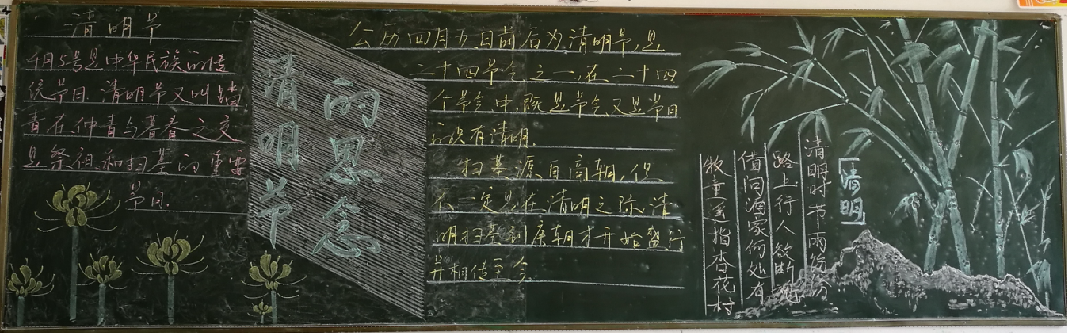 清明节
4月5号是中华民族的传
统节日清明节又叫踏
青在仲春与暮春之交
是祭祖和扫墓的重要
节日.
清明节
的思念
公历四月五日前后为清明节,是
二十四节气之一,在二十四
个节气中,既是节气又是节日
只有清明.
扫墓源自商朝,但
不一定是在清明之际,清
明扫墓到唐朝才开始盛行
并相传至今
清明
清明时节雨纷纷
路上行人欲断魂
借问酒家何处有
牧童遥指杏花村